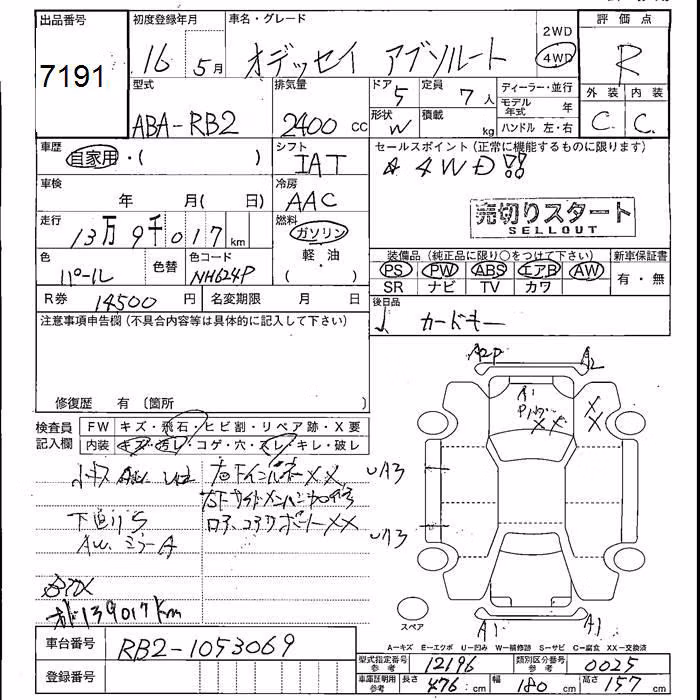 出品番号
7191
初度登録年月
16 5月
車名・グレード
オデッセイ アブソルート
2WD
4WD
評価点
R
外装 内装
C C
型式
ABA-RB2
排気量
2400 cc
ドア 5
定員 7人
形状 W
積載 kg
ディーラー・並行
モデル年式 年
ハンドル 左・右
車歴
自家用・( )
シフト
IAT
セールスポイント(正常に機能するものに限ります)
☆ 4WD!!
売切りスタート
SELLOUT
車検
年 月( 日)
冷房
AAC
走行
13万9千017km
燃料
ガソリン
軽・油
( )
色
パール
色替
色コード
NH624P
装備品(純正品に限り○をつけて下さい)
PS PW ABS エアB AW
SR ナビ TV カワ
新車保証書
有・無
R券 14500 円
名変期限 月 日
後日品
カードキー
注意事項申告欄(不具合内容等は具体的に記入して下さい)
修復歴 有 〔箇所
検査員記入欄
FW キズ・飛石・ヒビ割・リペア跡・X要
内装 キズ・汚レ・コゲ・穴・スレ・キレ・破レ
右Fインパネ-XX
下廻りS
ミラーA
139017km
A2P
A2
A1
XX
X
X
UA3
UA3
A1
A1
スペア
A-キズ E-エクボ U-凹み W-補修跡 S-サビ C-腐食 XX-交換済
車台番号
RB2-1053069
登録番号
型式指定番号 参考
12196
類別区分番号 参考
0025
車庫証明用 参考
長さ 476 cm
幅 180 cm
高さ 157 cm